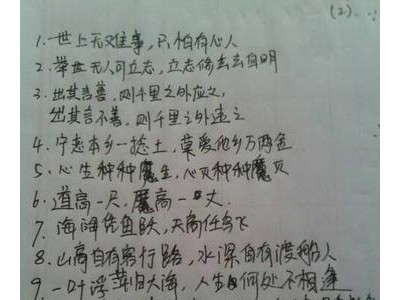 (2).
1. 世上无难事，只怕有心人
2. 举世无人可立志，立志修去去自明
3. 出其言善，则千里之外应之，
出其言不善，则千里之外违之
4. 宁恋本乡一捻土，莫爱他乡万两金
5. 心生种种魔生，心灭种种魔灭
6. 道高一尺，魔高一丈．
7. 海阔凭鱼跃，天高任鸟飞
8. 山高自有客行路，水深自有渡船人
9. 一叶浮萍归大海，人生何处不相逢